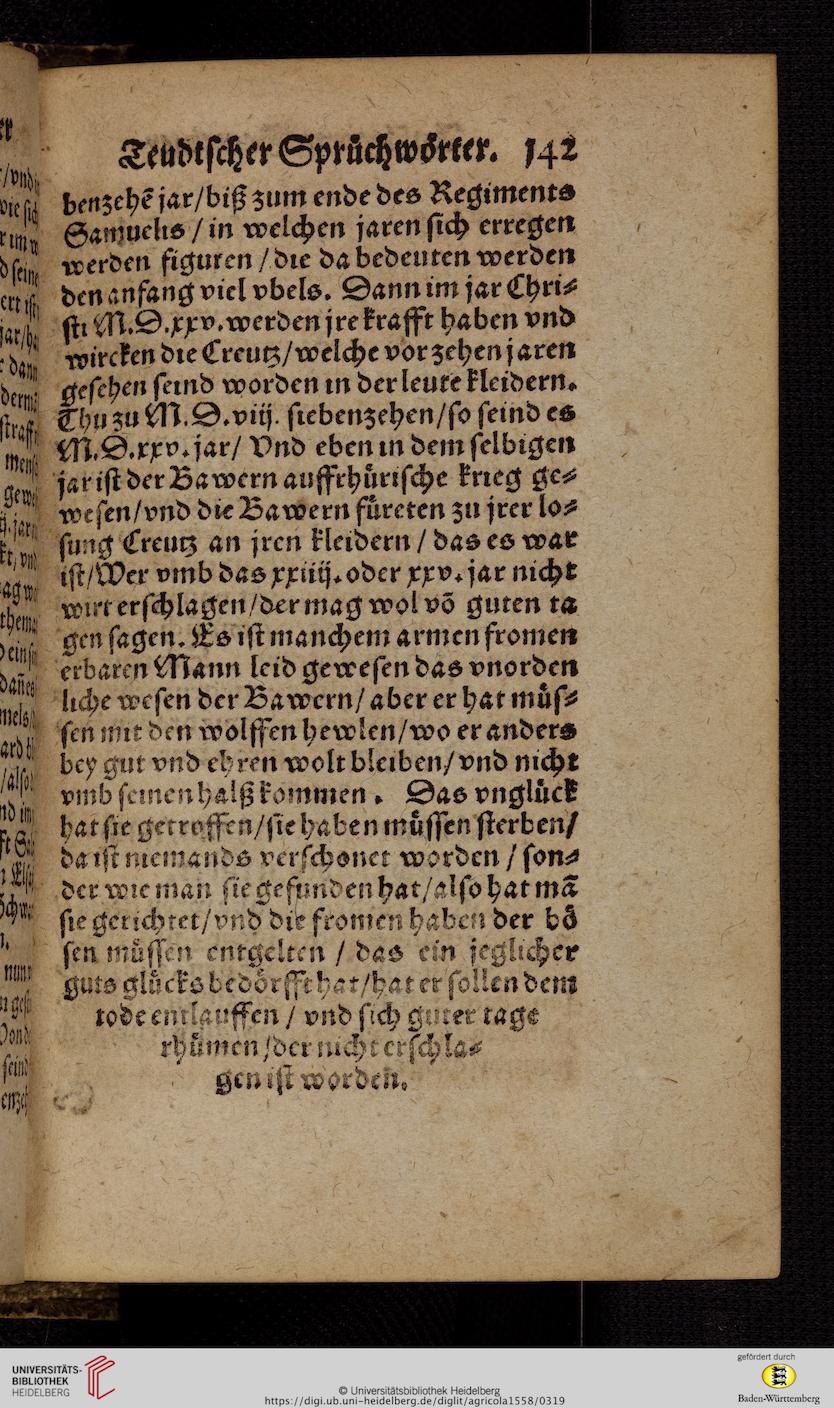 Teudtscher Sprůchwörter. 142
benzehē jar/biß zum ende des Regiments
Samuelis / in welchen jaren sich erregen
werden figuren / die da bedeuten werden
den anfang viel vbels. Dann im jar Chri⸗
sti M.D.xxv. werden jre krafft haben vnd
wircken die Creutz/welche vor zehen jaren
gesehen seind worden in der leute kleidern.
Thu zu M.D.viij. siebenzehen/so seind es
M.D.xxv. jar/ Vnd eben in dem selbigen
jar ist der Bawern auffrhůrische krieg ge⸗
wesen/vnd die Bawern fůreten zu jrer lo⸗
sung Creutz an jren kleidern / das es war
ist/Wer vmb das xxiiij. oder xxv. jar nicht
wirt erschlagen/der mag wol võ guten ta
gen sagen. Es ist manchem armen fromen
erbaren Mann leid gewesen das vnorden
liche wesen der Bawern/ aber er hat můs⸗
sen mit den wolffen hewlen/wo er anders
bey gut vnd ehren wolt bleiben/ vnd nicht
vmb seinen halß kommen. Das vnglůck
hat sie getroffen/sie haben můssen sterben/
da ist niemands verschonet worden / son⸗
der wie man sie gefunden hat/also hat mã
sie gerichtet/vnd die fromen haben der bö
sen můssen entgelten / das ein jeglicher
guts glůcks bedörfft hat/hat er sollen dem
tode entlauffen / vnd sich guter tage
rhůmen /der nicht erschla⸗
gen ist worden.
UNIVERSITÄTS-
BIBLIOTHEK
HEIDELBERG
© Universitätsbibliothek Heidelberg
https://digi.ub.uni-heidelberg.de/diglit/agricola1558/0319
gefördert durch
Baden-Württemberg